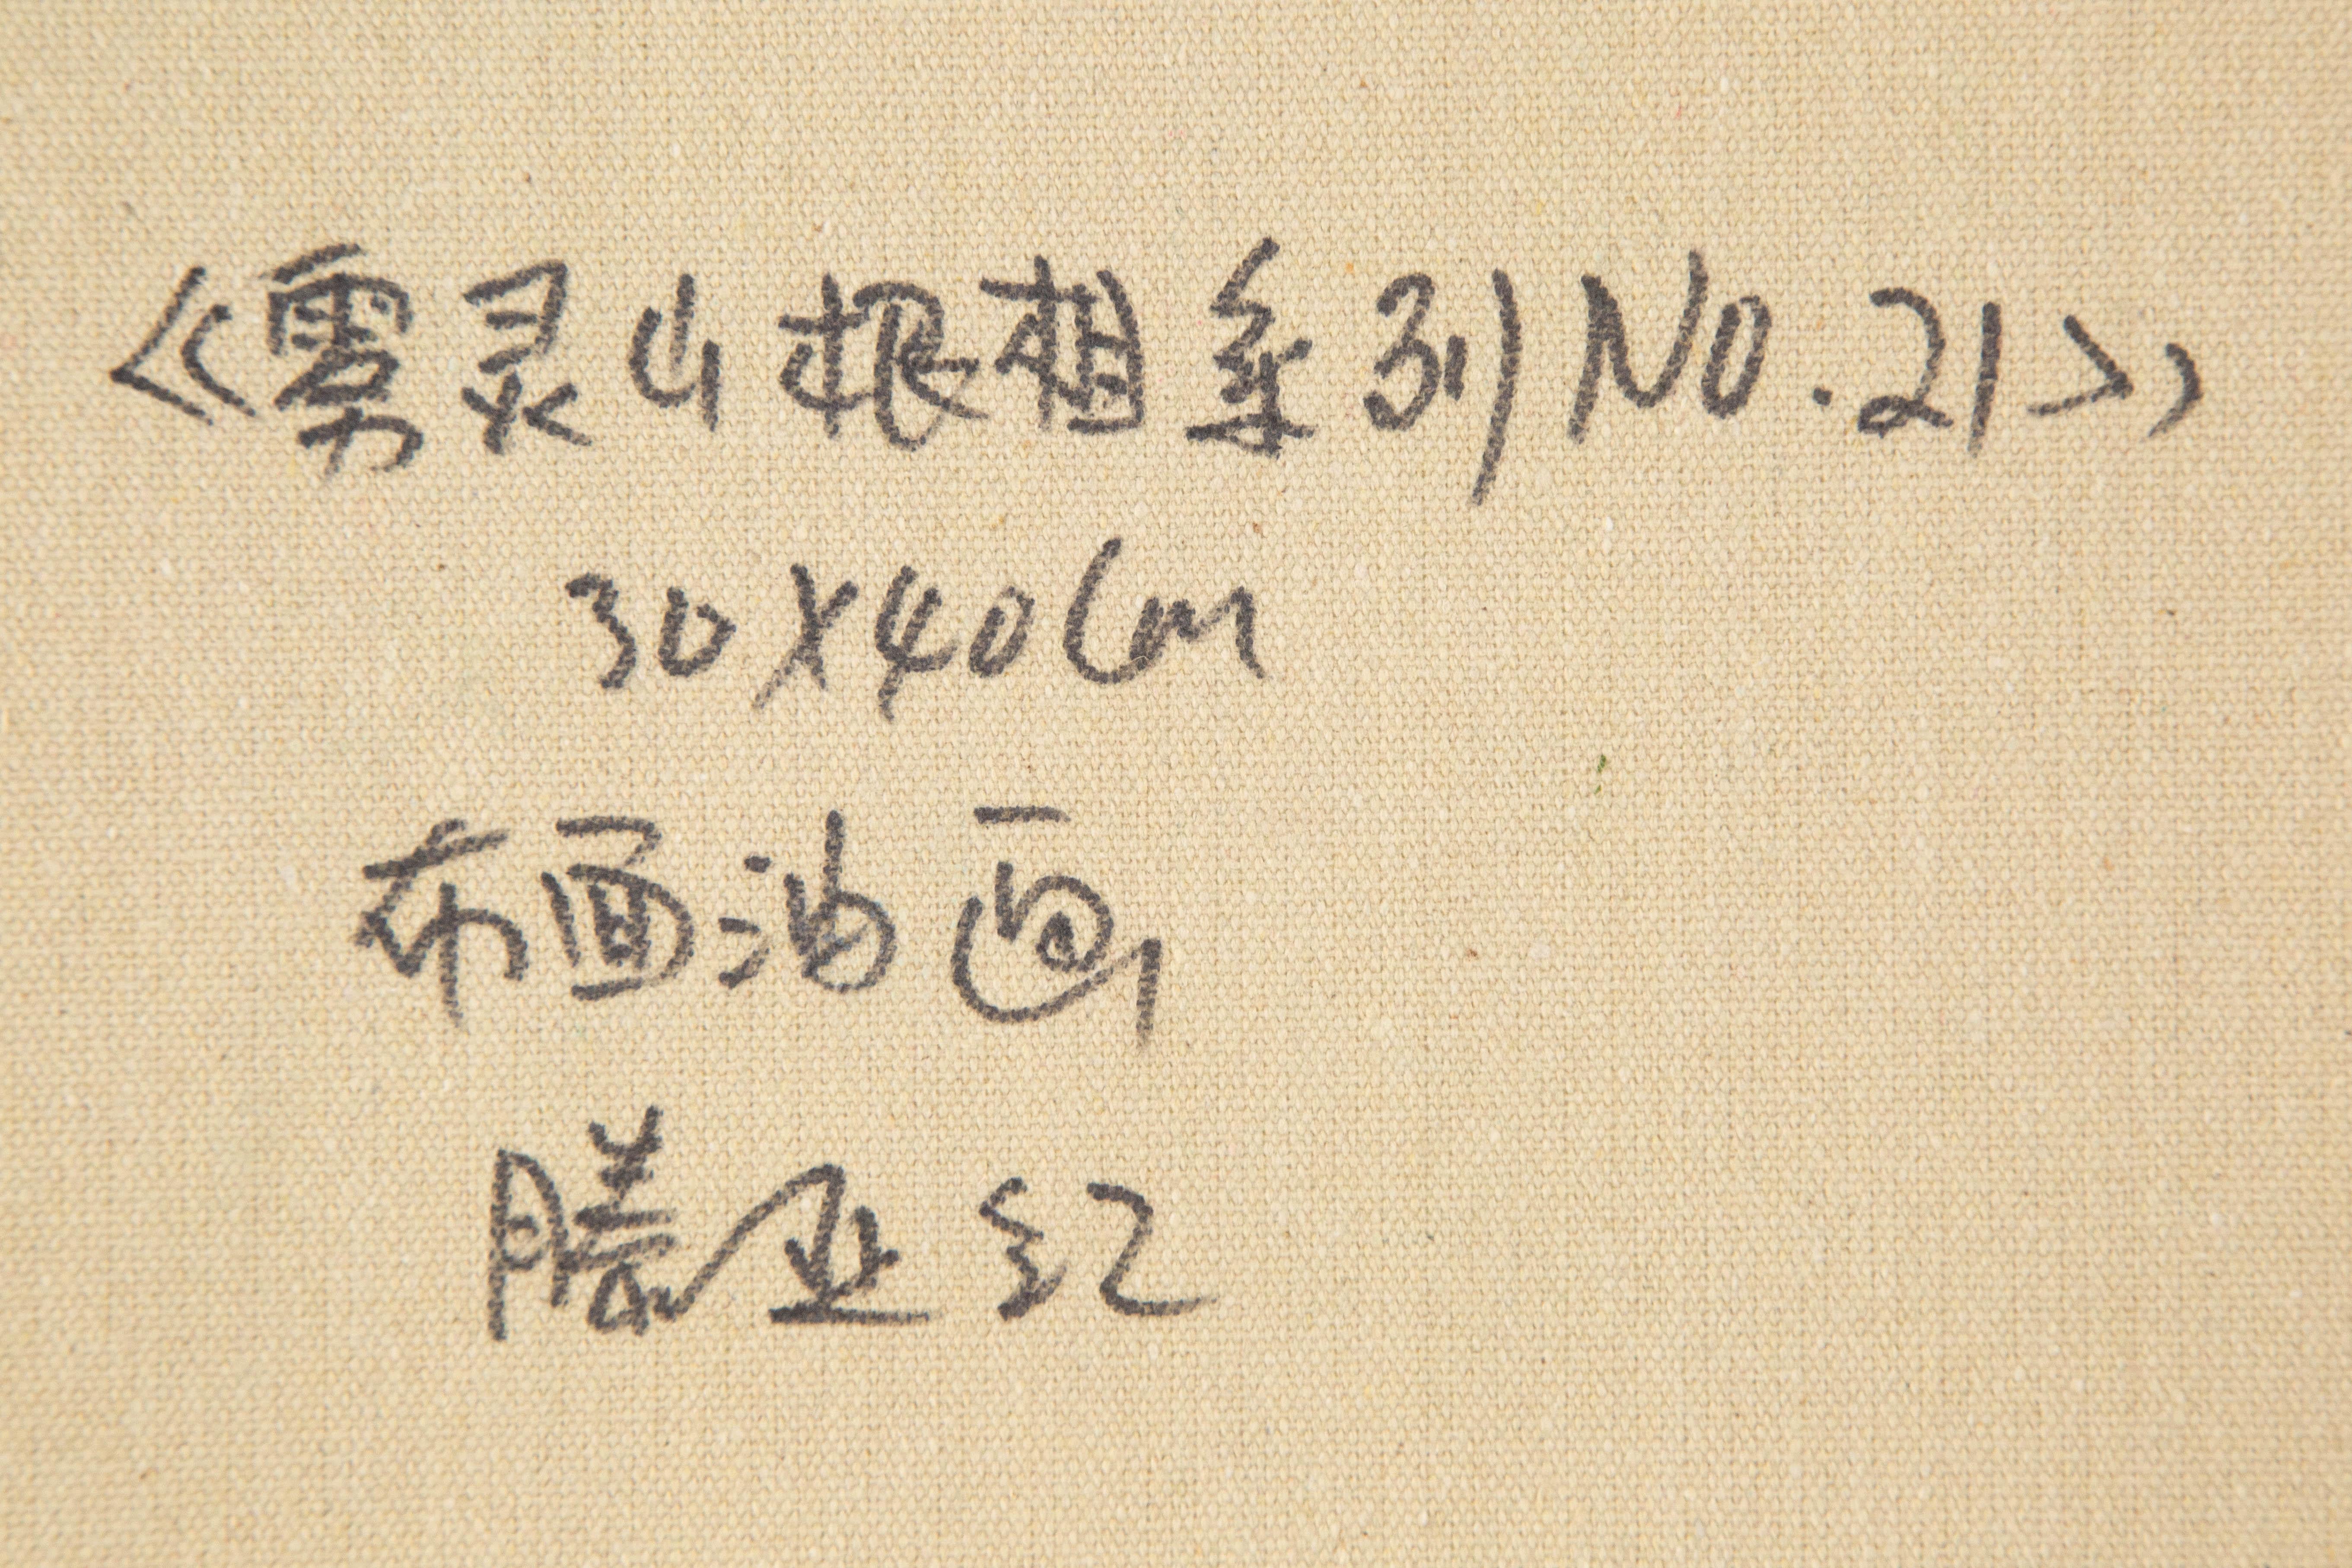 《雾灵山根植系列No.21》
30X40Cm
布面油画
滕亚红